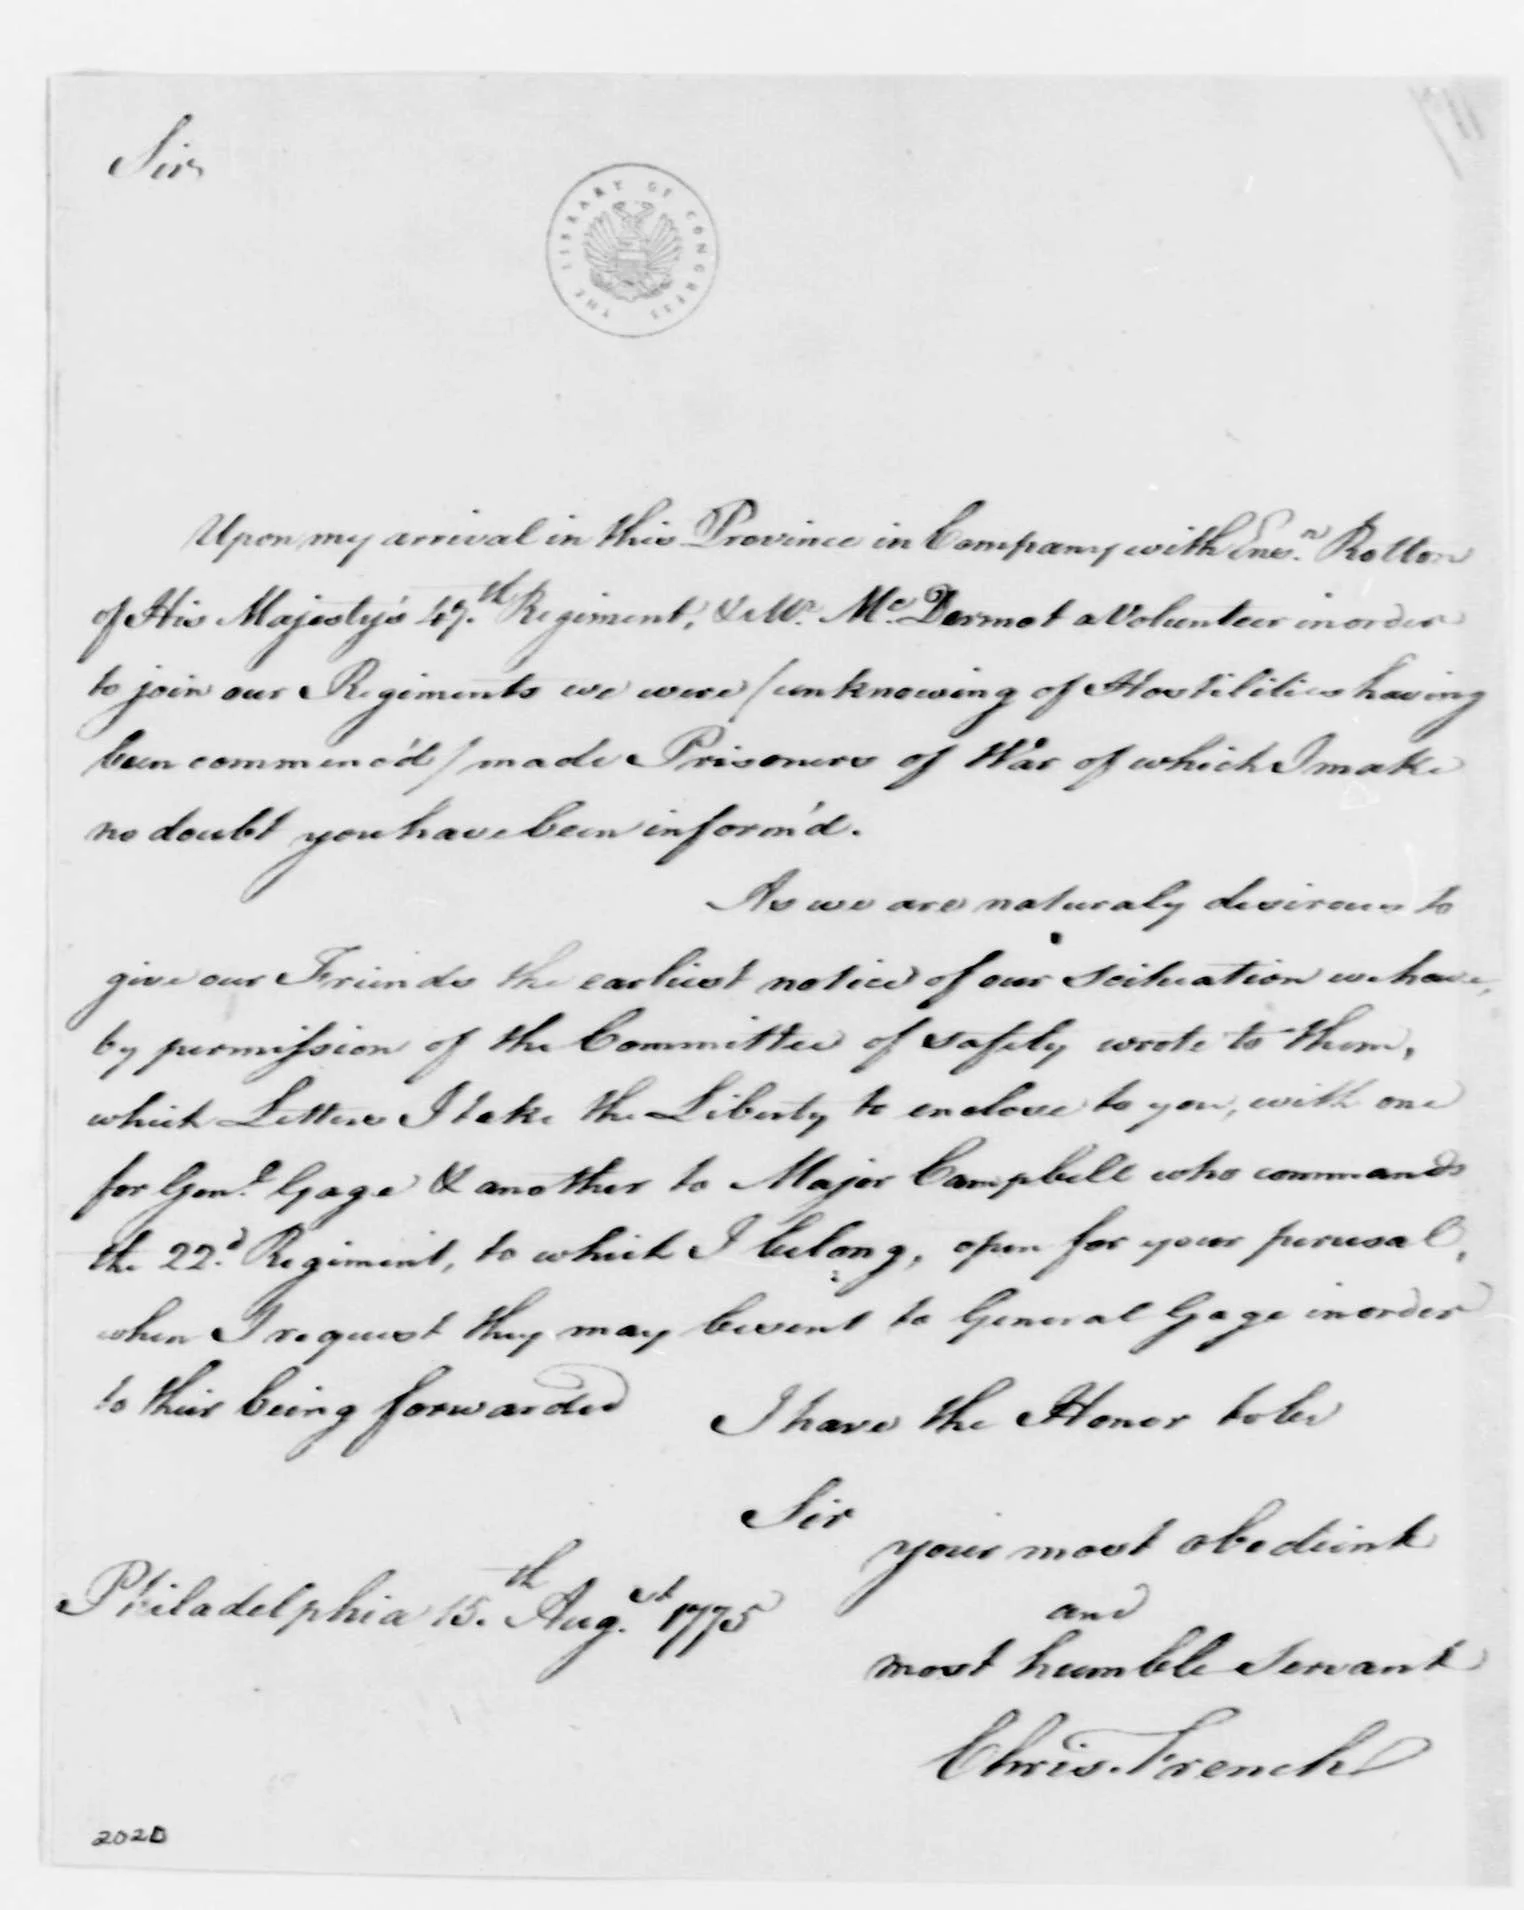 Sir
THE LIBRARY OF CONGRESS
Upon my arrival in this Province in Company with Ens.n Rotton
of His Majesty's 47.th Regiment, & Mr. Mc. Dermot a Volunteer in order
to join our Regiments we were / unknowing of Hostilities having
been commenc'd / made Prisoners of War of which I make
no doubt you have been inform'd.
As we are naturaly desirous to
give our Friends the earliest notice of our Scituation we have,
by permission of the Committee of Safety wrote to them,
which Letters I take the Liberty to enclose to you, with one
for Gen.l Gage & another to Major Campbell who commands
the 22.d Regiment, to which I belong, open for your perusal,
when I request they may be sent to General Gage in order
to their being forwarded
I have the Honor to be
Sir
your most obedient
and
Philadelphia 15.th Aug.st 1775
most humble Servant
Chris. French
2020